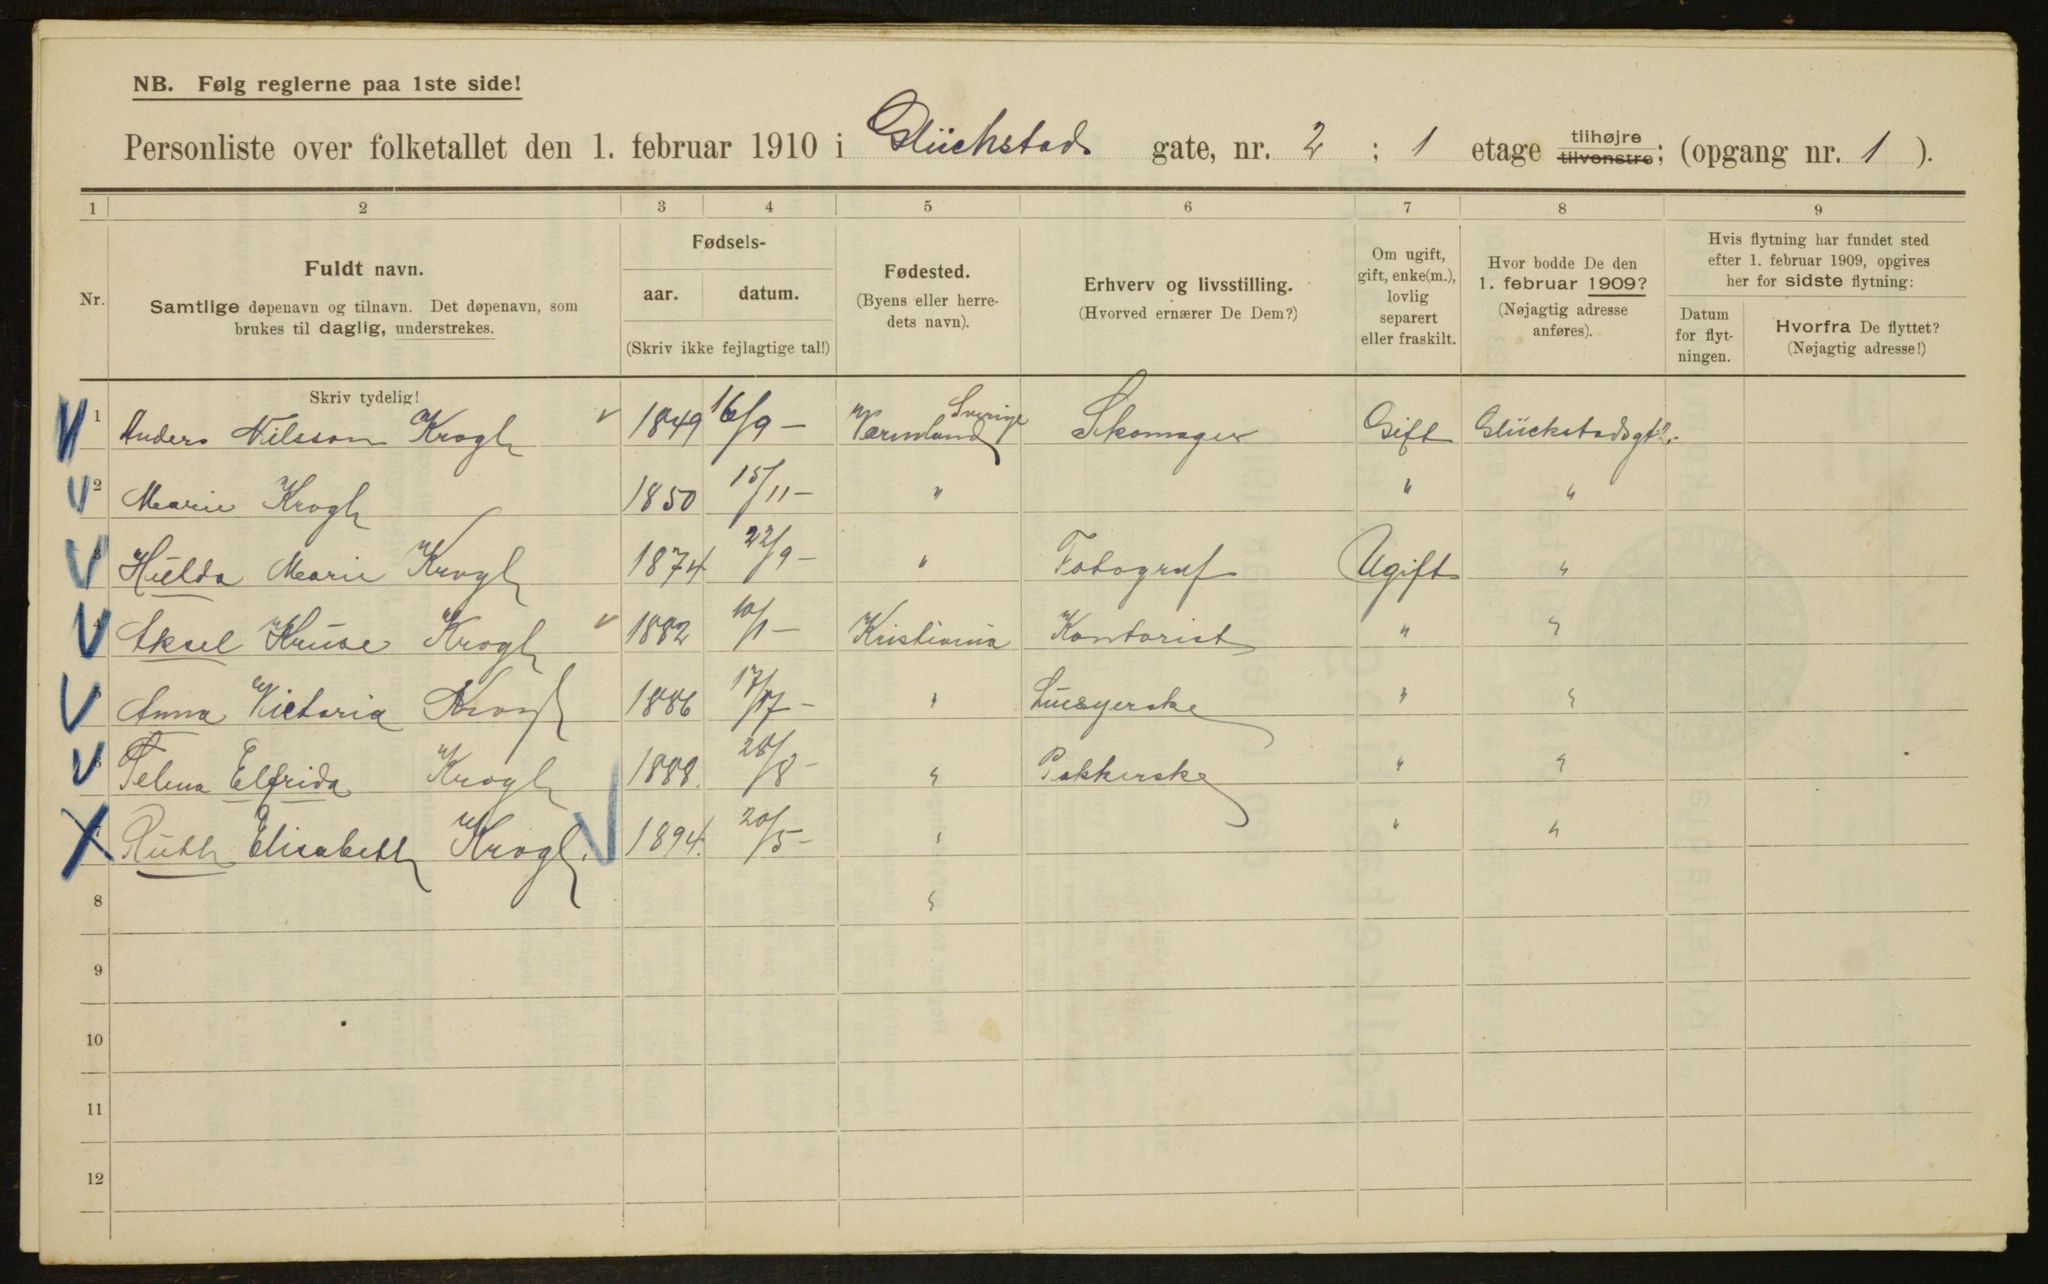 NB. Følg reglerne paa 1ste side!
Personliste over folketallet den 1. februar 1910 i Glückstads gate, nr. 2 ; 1 etage tilhøjre tilvenstre; (opgang nr. 1 ).
1 2 3 4 5 6 7 8 9
Nr.
Fuldt navn.
Samtlige døpenavn og tilnavn. Det døpenavn, som
brukes til daglig, understrekes.
Skriv tydelig!
Fødsels-
aar. datum.
(Skriv ikke fejlagtige tal!)
Fødested.
(Byens eller herre-
dets navn).
Erhverv og livsstilling.
(Hvorved ernærer De Dem?)
Om ugift,
gift, enke(m.),
lovlig
separert
eller fraskilt.
Hvor bodde De den
1. februar 1909?
(Nøjagtig adresse
anføres).
Hvis flytning har fundet sted
efter 1. februar 1909, opgives
her for sidste flytning:
Datum
for flyt-
ningen.
Hvorfra De flyttet?
(Nøjagtig adresse!)
1 Anders Nilsson Krogh 1849 16/9 – Värmland Sverige Skomager Gift Glückstadsgt 2.
2 Marie Krogh 1850 15/11 – " " "
3 Hulda Marie Krogh 1874 22/9 – " Fotograf Ugift "
4 Aksel Kruse Krogh 1882 10/1 – Kristiania Kontorist " "
5 Anna Victoria Krogh 1886 – " Linsyerske " "
6 Elfrida Krogh 1888. 28/8 – " Pakkerske " "
7 Ruth Elisabeth Krogh. 1894. 20/5 – " " "
8 "
9
10
11
12